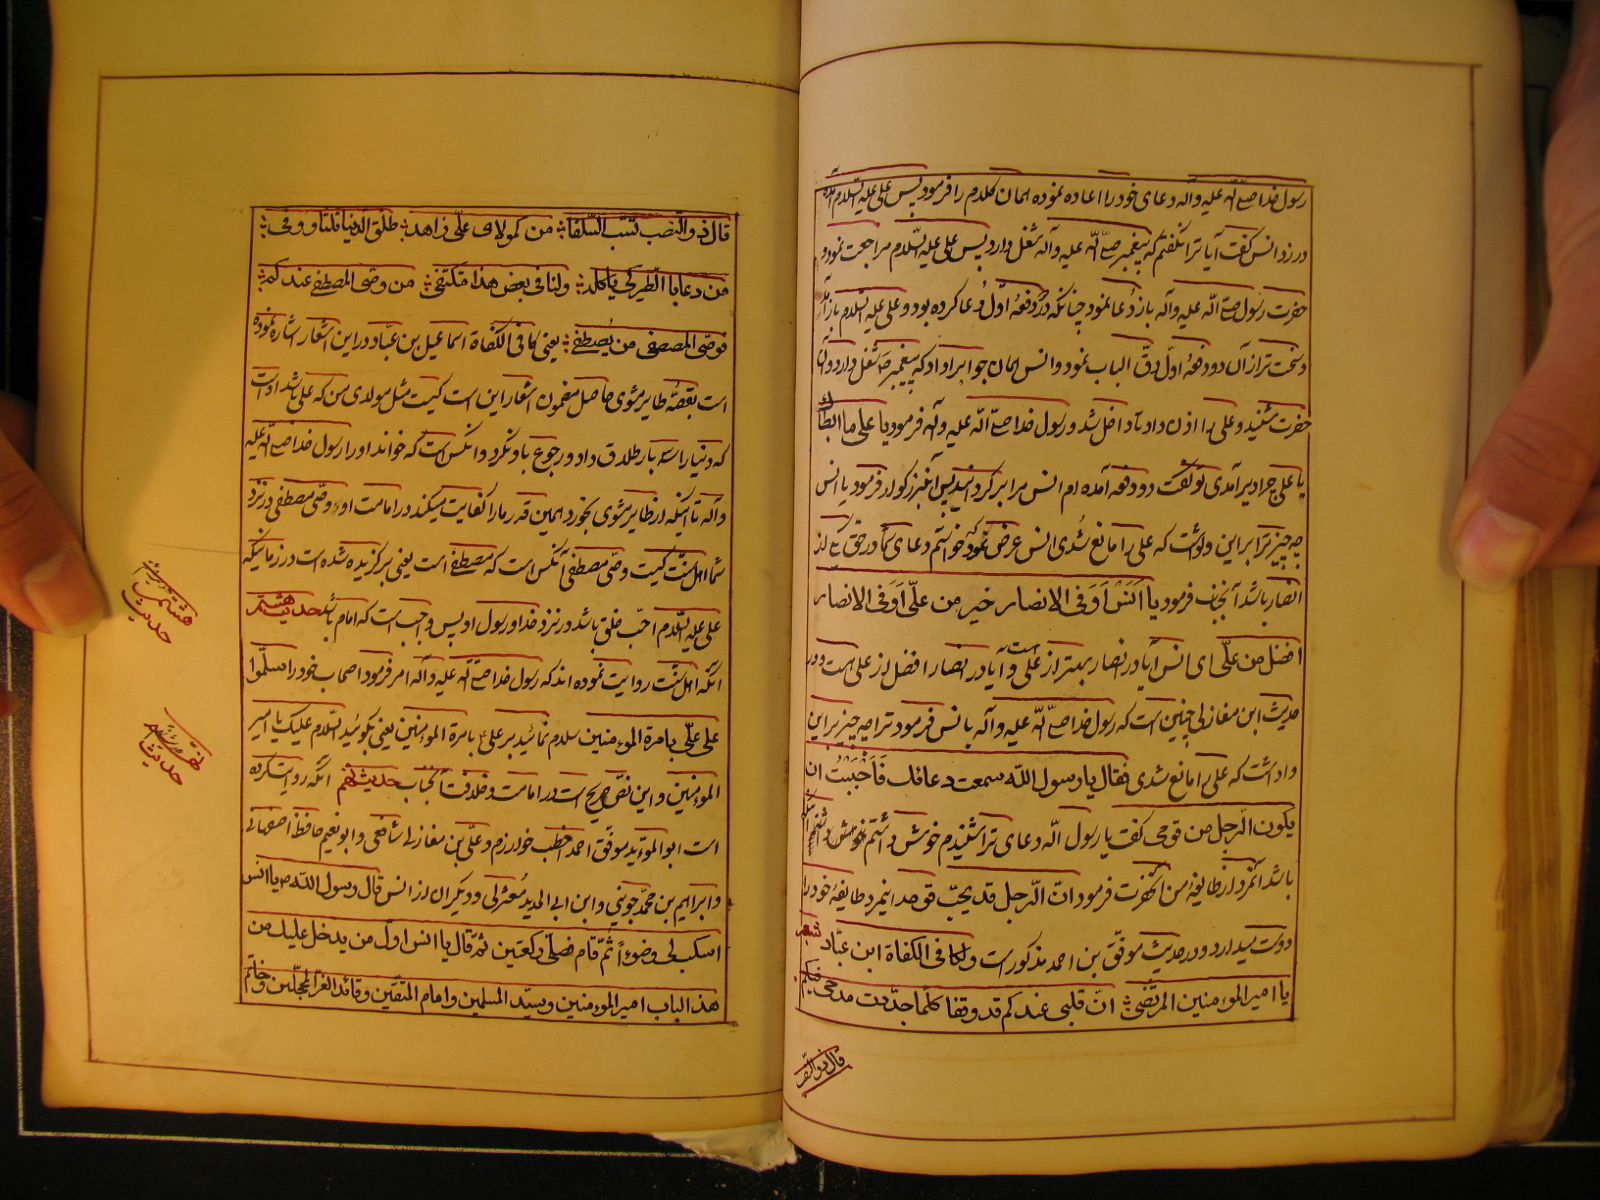 رسول خدا صلی الله علیه و آله دعای خود را اعاده نموده همان کلام را فرمود پس علی علیه السلام آمده
در زد انس گفت آیا ترا نگفتم که پیغمبر صلی الله علیه و آله شغل دارد پس علی علیه السلام مراجعت نمود و
حضرت رسول صلی الله علیه و آله باز دعا نمود چنانکه در دفعهٔ اول دعا کرده بود و علی علیه السلام باز آمد
و سخت تر از آن دو دفعهٔ اول دق الباب نمود و انس همان جواب را داد که پیغمبر ص شغل دارد و آن
حضرت شنید و علی را اذن داد تا داخل شد و رسول خدا صلی الله علیه و آله فرمود یا علی ما ابطأک
یا علی چرا دیر آمدی تو گفت دو دفعه آمده ام انس مرا برگردانید پس آن بزرگوار فرمود یا انس
چه چیز ترا بر این واداشت که علی را مانع شدی انس عرض نمود که خواستم دعای شما در حق یکی از
انصار باشد آنجناب فرمود یا انس أو فی الانصار خیر من علی أو فی الانصار
افضل من علی ای انس آیا در انصار بهتر از علی است و آیا در انصار افضل از علی هست و در
حدیث ابن مغازلی چنین است که رسول خدا صلی الله علیه و آله با نس فرمود ترا چه چیز بر این
واداشت که علی را مانع شدی فقال یا رسول الله سمعت دعائک فأحببت ان
یکون الرجل من قومی گفت یا رسول الله دعای ترا شنیدم خوش داشتم
باشد آنمرد از طایفهٔ من آنحضرت فرمود ان الرجل قد یحب قومه اینمرد طایفهٔ خود را
دوست میدارد و در حدیث موفق بن احمد مذکور است و لکافی الکفاة ابن عباد شعر
یا امیر المؤمنین المرتضی ؛ ان قلبی عندکم قد وقفا کلما جددت مدحی فیکم
قال ذو النصب
قال ذو النصب تسب السلفا ؛ من کمولای علی زاهد ؛ طلق الدنیا ثلثا و وفی ؛
من دعا بالطیر کی یأکله ؛ ولنا فی بعض هذا مکتفی ؛ من وصی المصطفی عندکم ؛
فوصی المصطفی من یصطفی ؛ یعنی کافی الکفاة اسماعیل بن عباد در این اشعار اشاره نموده
است بقصهٔ طایر مشوی حاصل مضمون اشعار این است کیست مثل مولای من که علی باشد او است
که دنیا را سه بار طلاق داد و رجوع باو نکرد و انکس است که خواند او را رسول خدا صلی الله علیه
و آله تا اینکه از طایر مشوی بخورد همین قدر ما را کفایت میکند در امامت او و وصی مصطفی در نزد
شما اهل سنت کیست وصی مصطفی آنکس است که مصطفی است یعنی برگزیده شده است در زمانیکه
علی علیه السلام احب خلق باشد در نزد خدا و رسول او پس واجب است که امام باشد حدیث هشتم
انکه اهل سنت روایت نموده اند که رسول خدا صلی الله علیه و آله امر فرمود اصحاب خود را سلموا
علی علی بامرة المؤمنین سلام نمائید بر علی ع بامرة المؤمنین یعنی بگوئید السلام علیک یا امیر
المؤمنین و این نص صریح است در امامت و خلافت آنجناب حدیث نهم انکه روایت کرده
است ابو المؤید موفق احمد اخطب خوارزم و علی بن مغازلی شافعی و ابو نعیم حافظ اصفهانی
و ابراهیم بن محمد جوینی و ابن ابی الحدید معتزلی و دیگران از انس قال رسول الله ص یا انس
اسکب لی وضوءا ثم قام فصلی رکعتین ثم قال یا انس اول من یدخل علیک من
هذا الباب امیر المؤمنین و سید المسلمین و امام المتقین و قائد الغر المحجلین و خاتم
هشتم
حدیث
نهم
حدیث